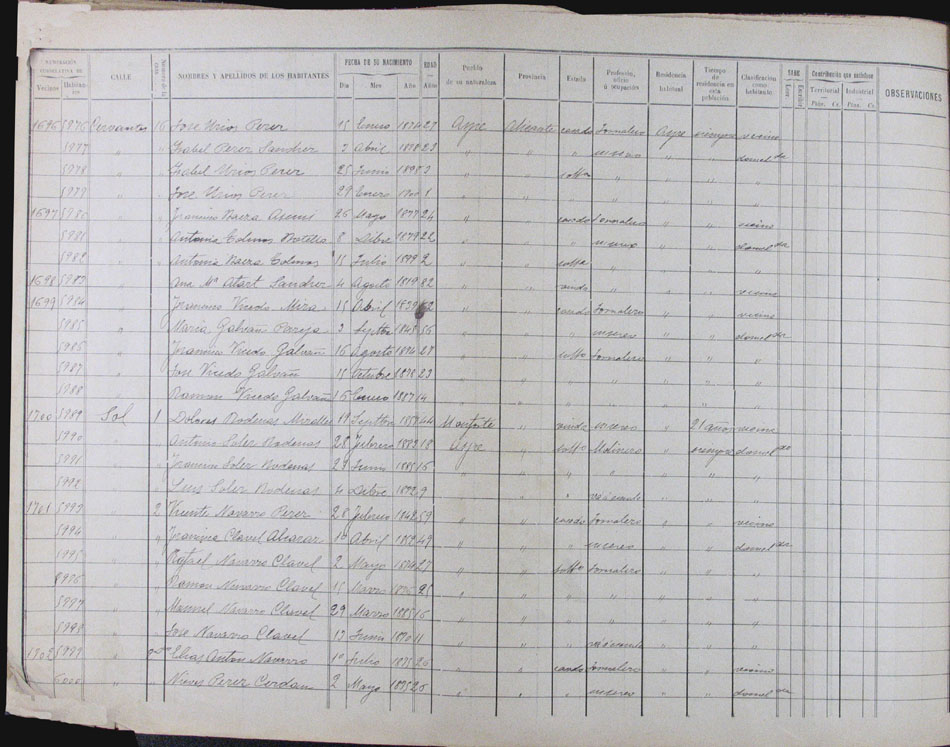 NUMERACIÓN CORRELATIVA DE
Vecinos Habitantes CALLE Número de la casa NOMBRES Y APELLIDOS DE LOS HABITANTES FECHA DE SU NACIMIENTO Dia Mes Año EDAD Años Pueblo de su naturaleza Provincia Estado Profesión, oficio ú ocupación Residencia habitual Tiempo de residencia en esta población Clasificación como habitante SABE Leer Escribir Contribución que satisface Territorial Ptas. Cs. Industrial Ptas. Cs. OBSERVACIONES
1696 5976 Cervantes 16 Jose Urios Perez 15 Enero 1874 27 Aspe Alicante casdo Jornalero Aspe siempre vecino
5977 " " Isabel Perez Sanchez 2 Abril 1878 23 " " " su sexo " " domcl da
5978 " " Isabel Urios Perez 25 Junio 1898 3 " " solta " " " "
5979 " " Jose Urios Perez 28 Enero 1900 1 " " " " " " "
1697 5980 " " Baera 26 Mayo 1877 24 " " casdo Jornalero " " vecino
5981 " " Antonia Colmos Botella 8 Dibre 1879 22 " " " su sexo " " domcl da
5982 " " Antonia Baera Colmos 15 Julio 1899 2 " " solta " " " "
1698 5983 " " Ana Ma Sanchez 4 Agosto 1819 82 " " vuda " " " vecino
1699 5984 " " Francisco Vicedo Mira 15 Abril 1839 62 " " casdo Jornalero " " vecino
5985 " " Maria Galvañ Pareja 2 Septbre 1845 56 " " " su sexo " " domcl da
5985 " " Francisco Vicedo Galvañ 16 Agosto 1874 27 " " solto Jornalero " " "
5987 " " Jose Vicedo Galvañ 15 Octubre 1878 23 " " " " " " "
5988 " " Ramon Vicedo Galvañ 15 Enero 1887 14 " " " " " " "
1700 5989 Sol 1 Dolores Rodenas Miralles 19 Septbre 1857 44 Monforte " viuda su sexo " 21 años vecina
5990 " " Antonio Soler Rodenas 28 Febrero 1883 18 Aspe " solto Molinero " siempre domcl do
5991 " " Francisco Soler Rodenas 29 Junio 1885 16 " " " " " " "
5992 " " Luis Soler Rodenas 4 Dibre 1892 9 " " " " " "
1701 5993 " 2 Vicente Navarro Perez 28 Febrero 1842 59 " " casado Jornalero " " vecino
5994 " " Francisca Clavel Alcaraz 1º Abril 1852 49 " " " su sexo " " domcl da
5995 " " Rafael Navarro Clavel 2 Mayo 1874 27 " " solto Jornalero " " "
5996 " " Ramon Navarro Clavel 15 Marzo 1876 25 " " " " " " "
5997 " " Manuel Navarro Clavel 29 Marzo 1885 16 " " " " " " "
5998 " " Jose Navarro Clavel 13 Junio 1890 11 " " " " " "
1702 5999 " Elias Anton Navarro 1º Julio 1875 26 " " casdo Jornalero " " vecino
6000 " " Nieves Perez Cerdan 2 Mayo 1875 26 " " " su sexo " " domcl da